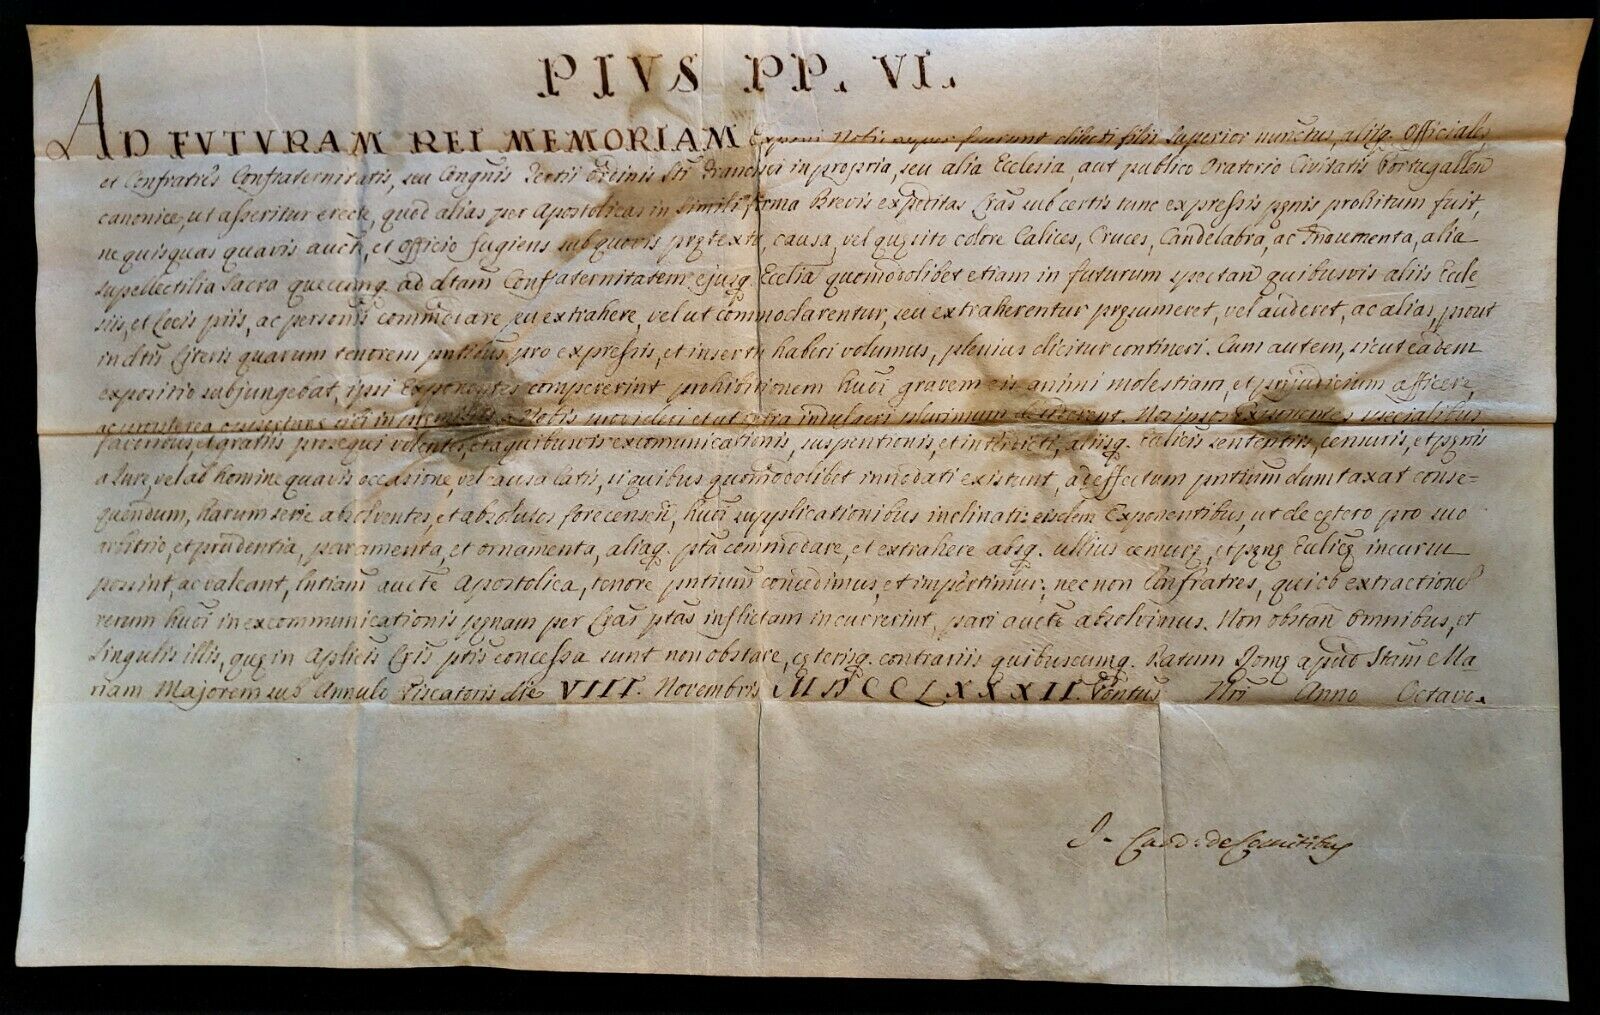 PIVS PP. VI.
AD FVTVRAM REI MEMORIAM Exponi Nobis nuper fecerunt dilecti filii Superior nunctus, aliiq. Officiales,
et Confratres Confraternitatis, seu Congnis Tertii Ordinis Sti Francisci in propria, seu alia Ecclesia, aut publico Oratorio Civitatis Portugallen
canonice, ut asseritur erecte, quod alias per Apostolicas in simili forma Brevis expeditas Lras sub certis tunc expressis pęnis prohitum fuit,
ne quisquas quavis aucte, et officio fugiens sub quovis prętextu, causa, vel quęsito colore Calices, Cruces, Candelabra, ac Indumenta, alia
supellectilia Sacra quecumq. ad dtam Confraternitatem ejusq. Ecclia quomodolibet etiam in futurum spectan quibusvis aliis Eccle-
siis, et Locis piis, ac personis commodare seu extrahere, vel ut commodarentur, seu extraherentur pręsumeret, vel auderet, ac alias, prout
in dtis Literis quarum tenorem pntibus pro expressis, et insertis haberi volumus, plenius dicitur contineri. Cum autem, sicut eadem
expositio subjungebat, ipsi Exponentes compererint prohibitionem huõi gravem eis animi molestiam, et pręjudicium afficere,
ac propterea opportune sibi in pręmissis a Nobis provideri et ut infra indulgeri plurimum desiderent. Nos ipsos Exponentes specialibus
favoribus, et gratiis prosequi volentes, et a quibusvis excomunicationis, suspentionis, et interdicti, aliisq. Eccliciis sententiis, censuris, et pęnis
a Jure, vel ab homine quavis occasione, vel causa latis, si quibus quomodolibet innodati existunt, ad effectum pntium dumtaxat conse-
quendum, harum serie absolventes, et absolutos fore censen, huõi supplicationibus inclinati eisdem Exponentibus, ut de cętero pro suo
arbitrio, et prudentia, paramenta, et ornamenta, aliaq. pta commodare, et extrahere absq. ullius censurę, et pęnę Eccliceę incursu
possint, ac valeant, lntiam aucte Apostolica, tenore pntium concedimus, et impertimur; nec non Confratres, qui ob extractionē
rerum huõi in excommunicationis pęnam per Lras ptas inflictam incurrerint, pari aucte absolvimus. Non obstan omnibus, et
singulis illis, quę in Aplicis Lris ptis concessa sunt non obstare, cęterisq. contrariis quibuscumq. Datum Romę apud Stam Ma
riam Majorem sub Annulo Piscatoris die VIII. Novembris MDCCLXXXII. Pontus Nri Anno Octavo.
J. Card: de Comitibus